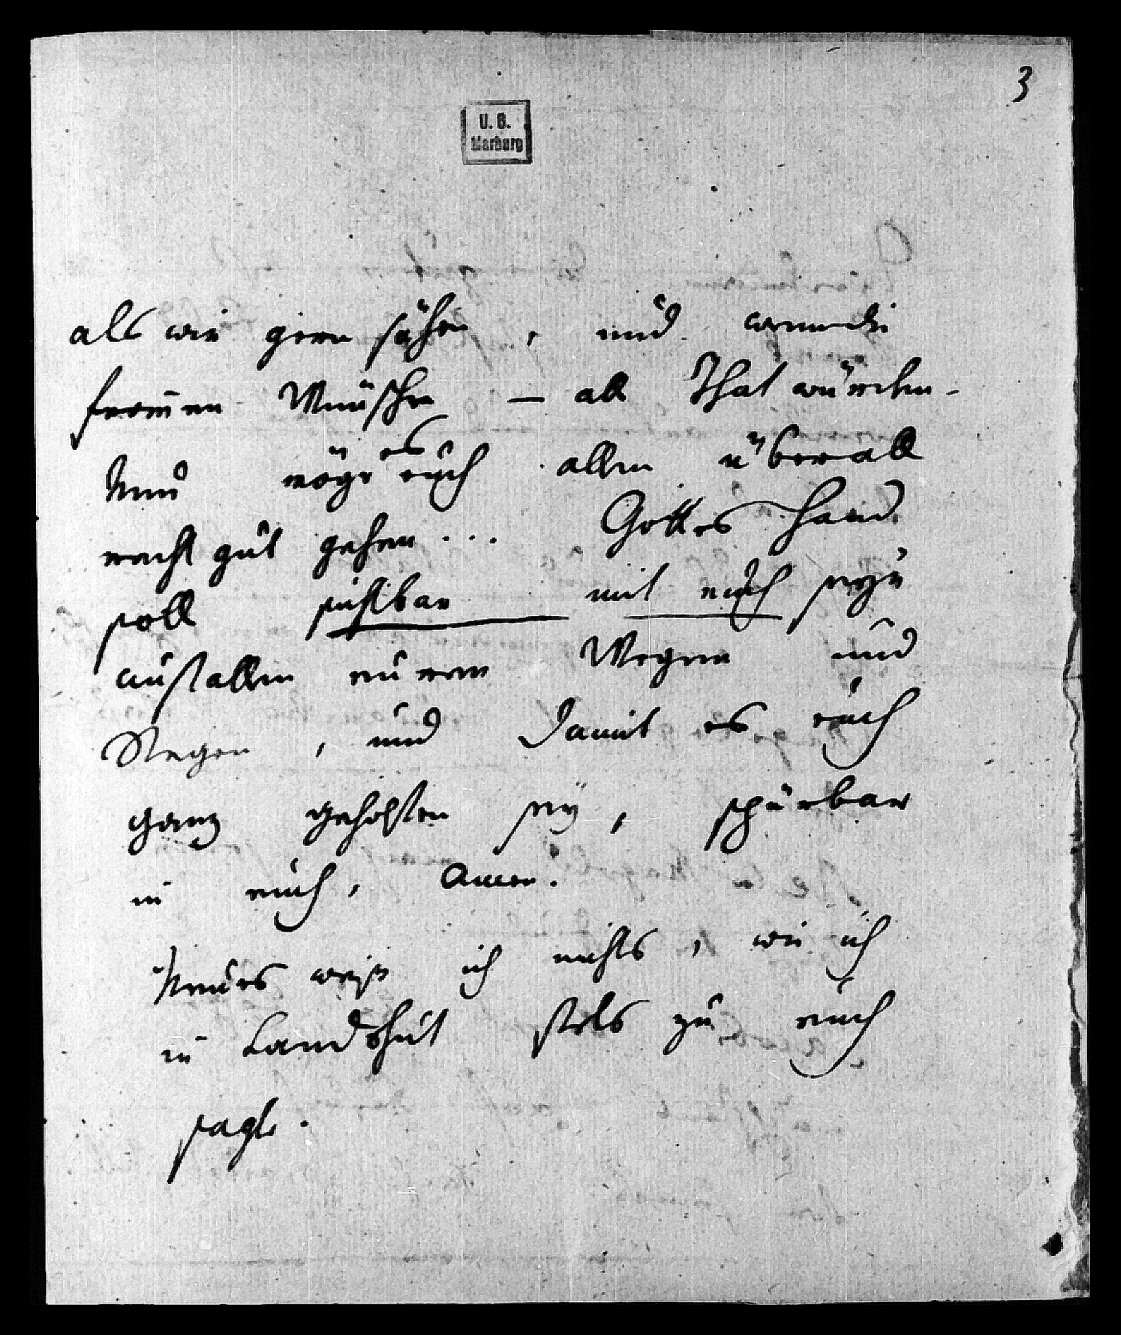 3
U. B.
Marburg
als wir gern sähen, und wenn die
from̄en Wünsche — all That würden.
Nun möge es euch allen überall
recht gut gehen... Gottes Hand
soll sichtbar mit euch seyn
auf allen euren Wegen und
Stegen, und damit es euch
ganz geholfen sey, spürbar
in euch, Amen.
Neues weiß ich nichts, wie ich
in Landshut stets zu euch
sagte.